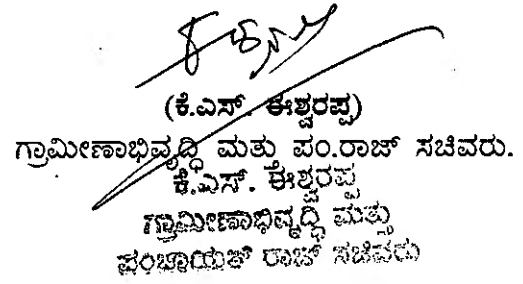 (ಕೆ.ಎಸ್. ಈಶ್ವರಪ್ಪ)
ಗ್ರಾಮೀಣಾಭಿವೃದ್ಧಿ ಮತ್ತು ಪಂ.ರಾಜ್ ಸಚಿವರು.
ಕೆ.ಎಸ್. ಈಶ್ವರಪ್ಪ
ಗ್ರಾಮೀಣಾಭಿವೃದ್ಧಿ ಮತ್ತು
ಪಂಚಾಯತ್ ರಾಜ್ ಸಚಿವರು